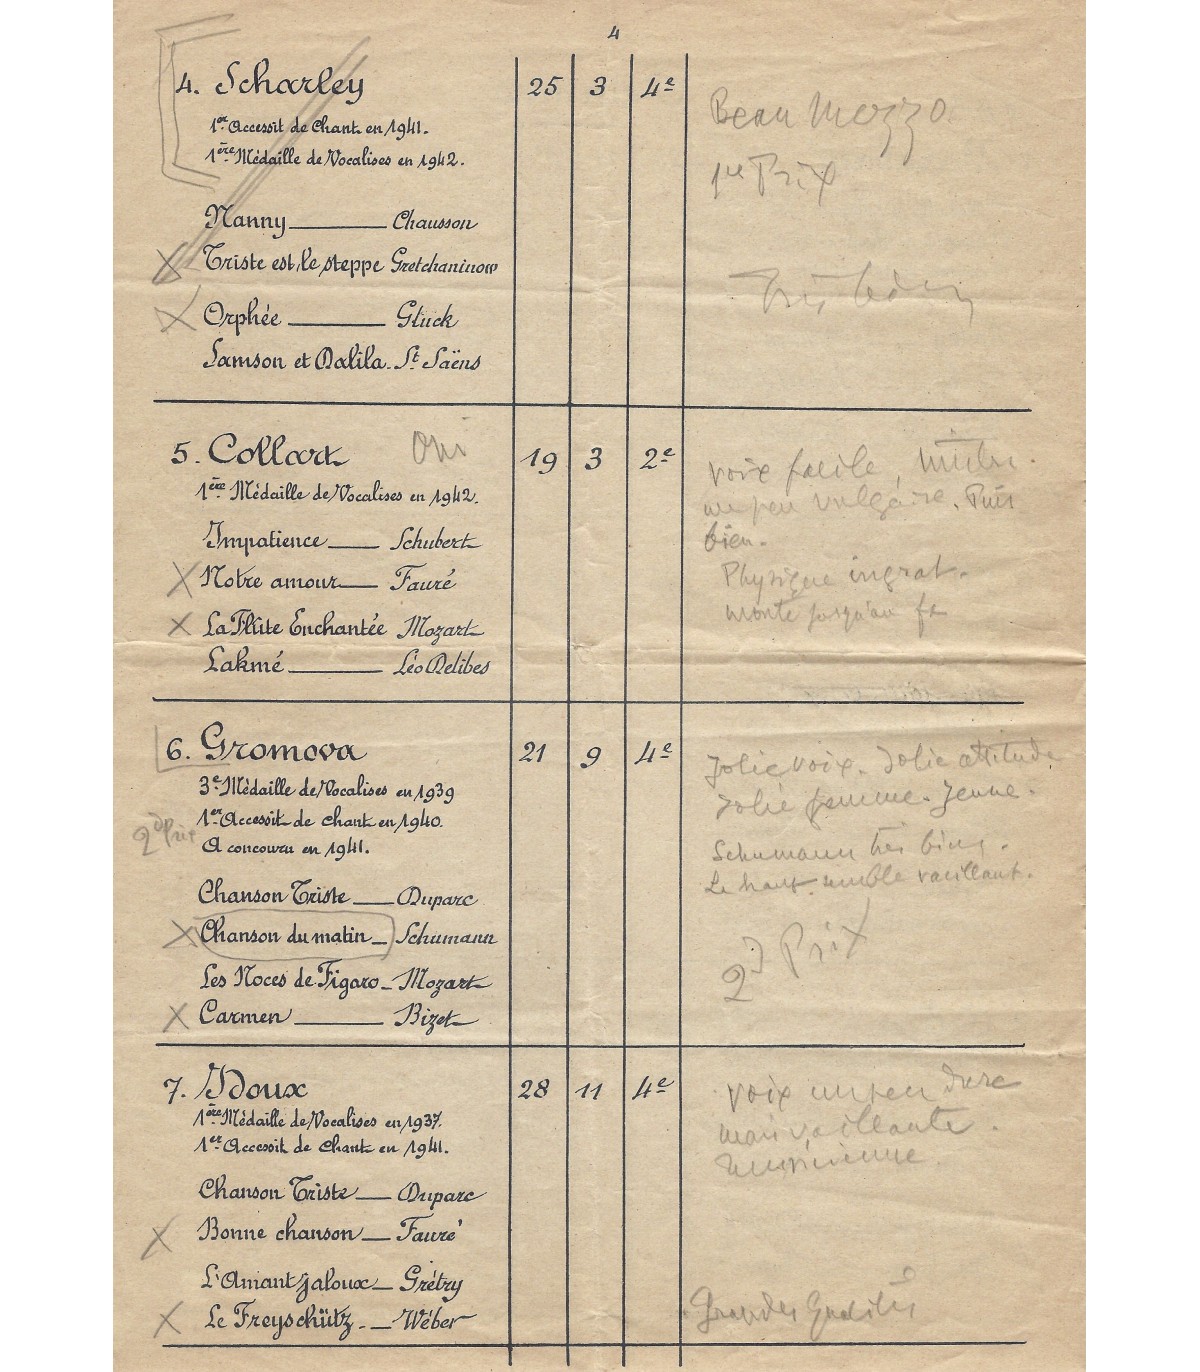 4
4. Scharley 25 3 4e
1er Accessit de Chant en 1941.
1ère Médaille de Vocalises en 1942.
Nanny Chausson
Triste est le steppe Gretchaninow
Orphée Gluck
Samson et Dalila. St Saëns
Beau Mezzo.
1er Prix
Très bien
5. Collart Oui 19 3 2e
1ère Médaille de Vocalises en 1942.
Impatience Schubert
Notre amour Fauré
La Flûte Enchantée Mozart
Lakmé Léo Delibes
voix facile,
un peu vulgaire. Très
bien.
Physique ingrat.
monte jusqu'au fa
6. Gromova 21 9 4e
3e Médaille de Vocalises en 1939
1er Accessit de chant en 1940.
A concouru en 1941.
2d Prix
Chanson Triste Duparc
Chanson du matin Schumann
Les Noces de Figaro Mozart
Carmen Bizet
Jolie voix. Jolie attitude
Jolie femme. Jeune.
Schumann très bien.
Le haut semble vacillant.
2d Prix
7. Idoux 28 11 4e
1ère Médaille de Vocalises en 1937.
1er Accessit de Chant en 1941.
Chanson Triste Duparc
Bonne chanson Fauré
L'Amant jaloux Grétry
Le Freyschütz. Wéber
voix un peu dure
mais vaillante.
Musicienne.
Grandes Qualités